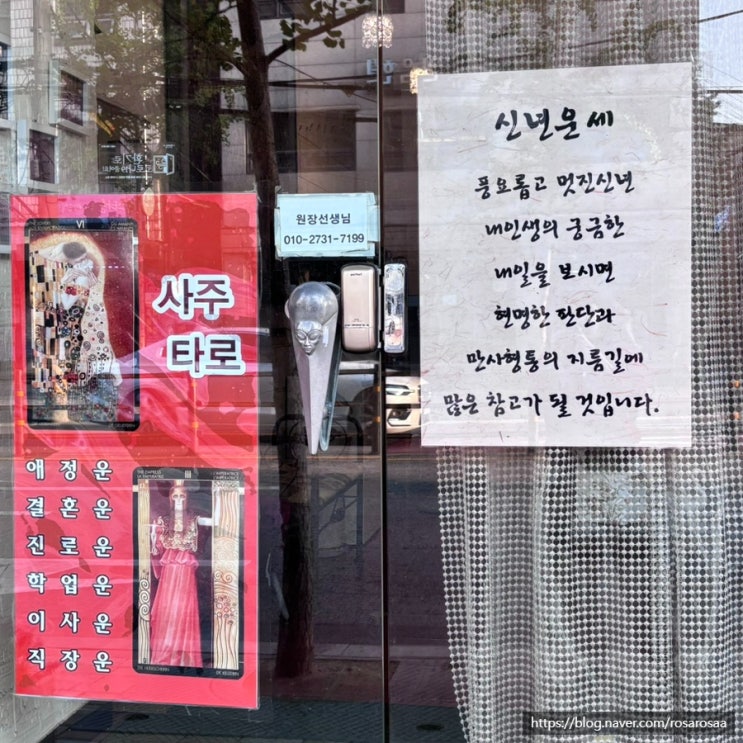 사주
타로
VI
애정운
결혼운
진로운
학업운
이사운
직장운
THE EMPRESS
III
원장선생님
010-2731-7199
신년운세
풍요롭고 멋진신년
내인생의 궁금한
내일을 보시면
현명한 판단과
만사형통의 지름길에
많은 참고가 될 것입니다.
https://blog.naver.com/rosarosaa